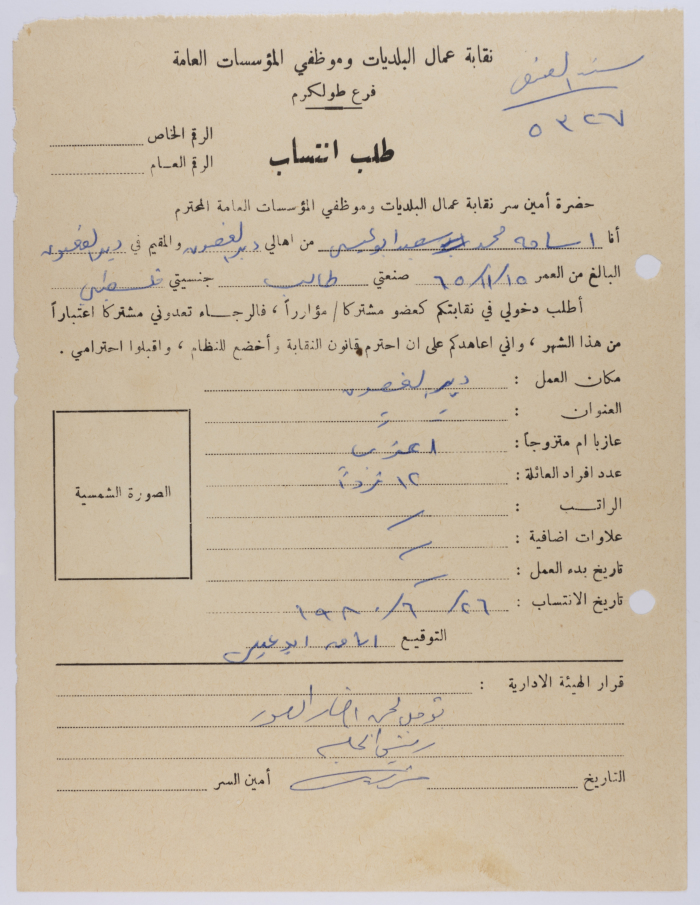 نقابة عمال البلديات وموظفي المؤسسات العامة
فرع طولكرم
سند القبض
٥٣٢٧
طلب انتساب
الرقم الخاص
الرقم العـام
حضرة أمين سر نقابة عمال البلديات وموظفي المؤسسات العامة المحترم
أنا اسامه محمد سعيد ابو عيسى من اهالي دير الغصون والمقيم في دير الغصون
البالغ من العمر ٦٥/١١/١٥ صنعتي طالب جنسيتي فلسطيني
أطلب دخولي في نقابتكم كعضو مشتركا / مؤازراً ، فالرجاء تعدوني مشتركا اعتباراً
من هذا الشهر ، واني اعاهدكم على ان احترم قانون النقابة وأخضع للنظام ، واقبلوا احترامي .
مكان العمل : دير الغصون
العنوان :
عازبا ام متزوجاً : اعزب
عدد افراد العائلة : ١٢ فرداً
الراتـب :
علاوات اضافية :
تاريخ بدء العمل :
تاريخ الانتساب : ٢٦/٦/١٩٨٠
الصورة الشمسية
التوقيع اسامه ابو عيسى
قرار الهيئة الادارية :
تؤجل لحين احضار الصور
التاريخ
أمين السر